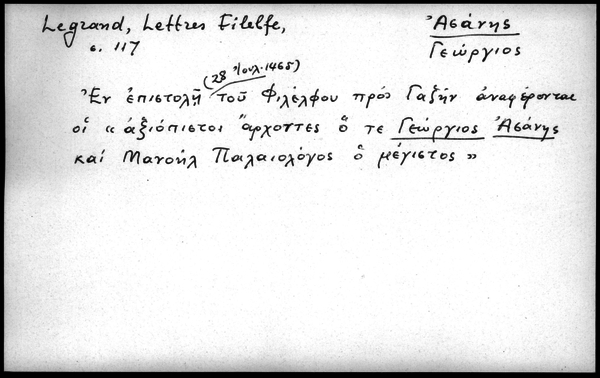 Legrand, Lettres Filelfe,
σ. 117
Ἀσάνης
Γεώργιος
(28 Ἰουλ. 1465)
Ἐν ἐπιστολῇ τοῦ Φιλέλφου πρὸς Γαζῆν ἀναφέρονται
οἱ « ἀξιόπιστοι ἄρχοντες ὅ τε Γεώργιος Ἀσάνης
καί Μανουὴλ Παλαιολόγος ὁ μέγιστος »